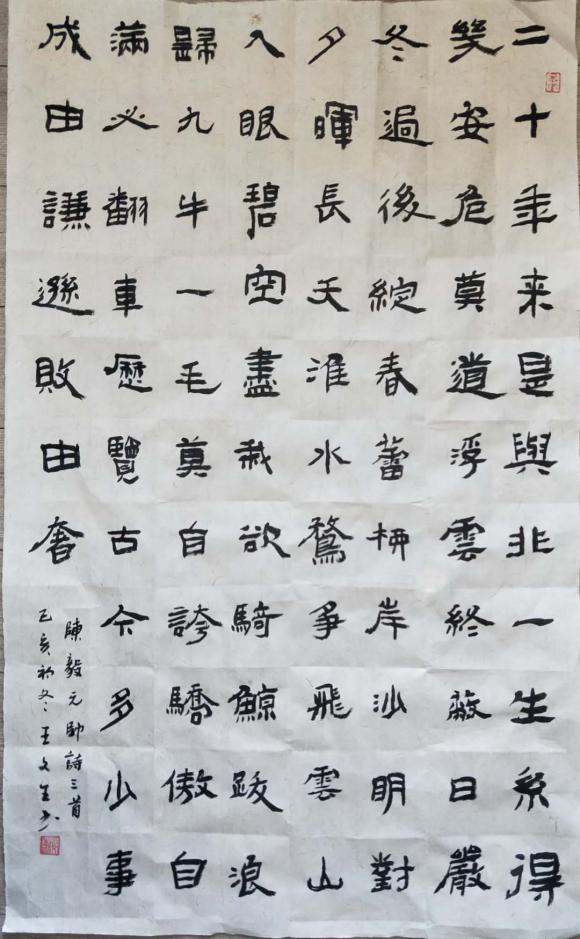 二十年来是與非一生系得
笑安危莫道浮雲終蔽日嚴
冬過後綻春蕾柳岸沙明對
夕暉長天淮水鶩爭飛雲山
入眼碧空盡我欲騎鯨跋浪
歸九牛一毛莫自誇驕傲自
滿必翻車歷覽古今多少事
成由謙遜敗由奢
陳毅元帥詩三首
己亥初冬王文生书